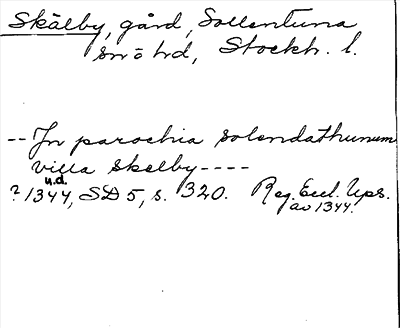 Skälby, gård, Sollentuna
sn o hd, Stockh. l.
-- In parochia solendathunum
villa skelby ----
u.d.
? 1344, SD 5, s. 320. Reg. Eccl. Ups.
av 1344.